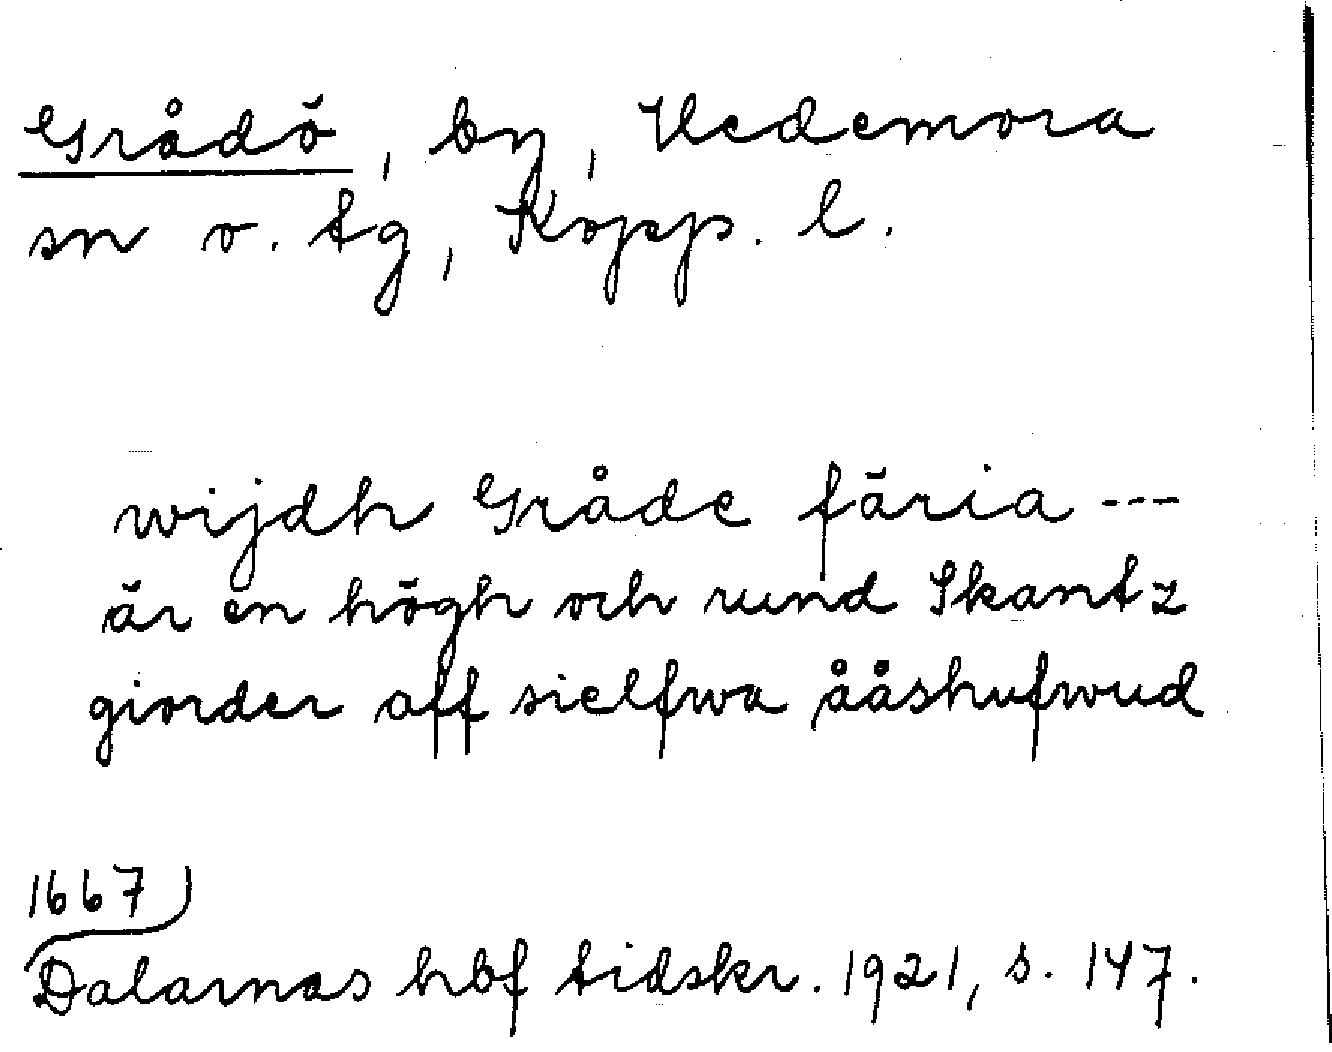 Grådö, by, Hedemora
sn o. tg, Kopp. l.
wijdh Gråde färia ---
är en högh och rund Skantz
giorder aff sielfwa ååshufwud
1667
Dalarnas hbf tidskr. 1921, s. 147.